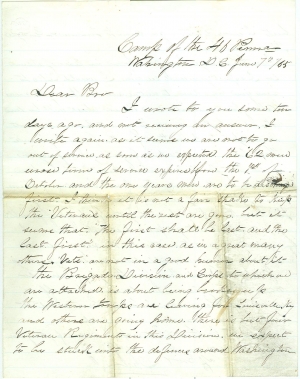 Camp of the 46 Penna
Washington D C June 7th /65
Dear Bro
I wrote to you some ten
days ago, and not receiving an answer, I
write again, as it seems we are not to go
out of service as soon as we expected the
whose term of service expires from the 1st
October and the one years men are to be
first. I think it is not a fair shake to keep
the Veterans until the rest are gone but it
seems that. The first shall be last and the
last first, in this case as in a great many
others. Vets are not in a good humor about it
the Division and Corps to which we
are attached is about being broken up
the Western troops are for
and others are going home. There is but four
Veteran Regiments in this Division. we expect
to be stuck into the defences around Washington